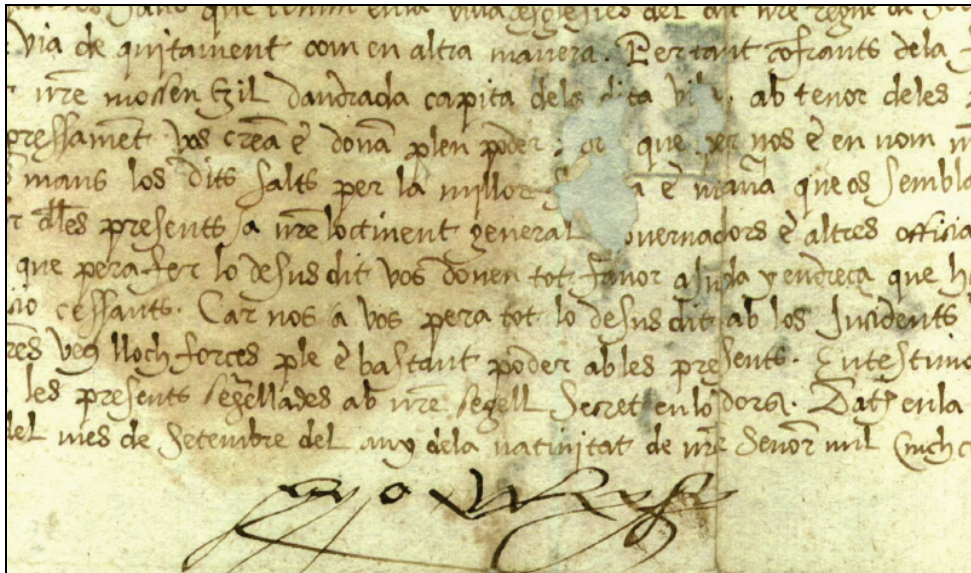 que tenim en la vila desglesies del dit nre regne de
via de quitament com en altra manera. Per tant cofiants dela
nre mossen Gil dandrada capita dela dita vila ab tenor deles
pressament vos crea è dona plen poder que per nos è en nom
mans los dits salts per la millor è maña que os sembla
dles presents a nre loctinent general governadors è altres officia
que pera fer lo desus dit vos donen tot favor ajuda y endreça que
cessants. Car nos a vos pera tot lo desus dit ab los Incidents
veus lloch forces ple è bastant poder ab les presents. En testimo
les presents segellades ab nre segell secret en lo dors. Dat en la
del mes de Setembre del any dela natiuitat de nre Senor mil Cinch
yo